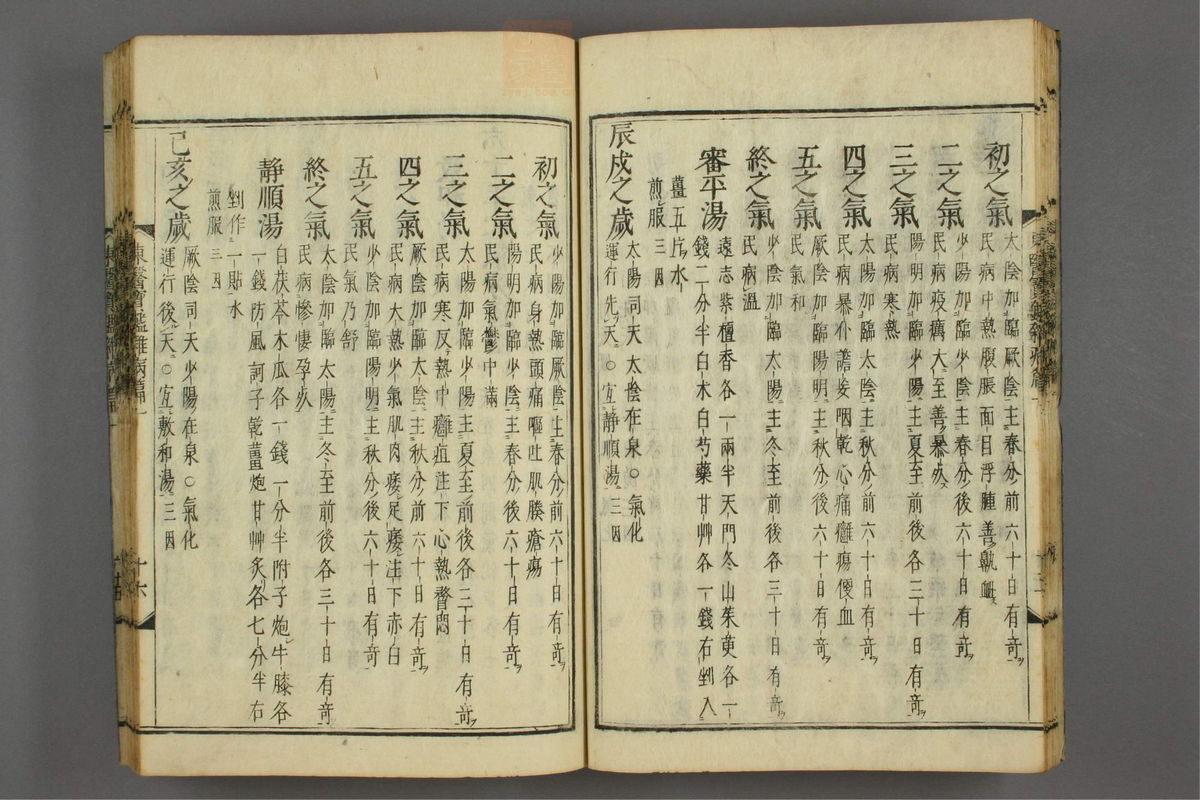 初之氣 太陰加臨厥陰主春分前六十日有奇
民病中熱腹脹面目浮腫善鼽衄
二之氣 少陽加臨少陰主春分後六十日有奇
民病疫癘大至善暴死
三之氣 陽明加臨少陽主夏至前後各三十日有奇
民病寒熱
四之氣 太陽加臨太陰主秋分前六十日有奇
民病暴仆譫妄咽乾心痛癰瘍便血
五之氣 厥陰加臨陽明主秋分後六十日有奇
民氣和
終之氣 少陰加臨太陽主冬至前後各三十日有奇
民病溫
審平湯 遠志紫檀香各一兩半天門冬山茱萸各一
錢二分半白朮白芍藥甘艸各一錢右剉入
薑五片水
煎服三因
辰戌之歲 太陽司天太陰在泉○氣化
運行先天○宜靜順湯三因
初之氣 少陽加臨厥陰主春分前六十日有奇
民病身熱頭痛嘔吐肌腠瘡瘍
二之氣 陽明加臨少陰主春分後六十日有奇
民病氣鬱中滿
三之氣 太陽加臨少陽主夏至前後各三十日有奇
民病寒反熱中癰疽注下心熱瞀悶
四之氣 厥陰加臨太陰主秋分前六十日有奇
民病大熱少氣肌肉痿足痿注下赤白
五之氣 少陰加臨陽明主秋分後六十日有奇
民氣乃舒
終之氣 太陰加臨太陽主冬至前後各三十日有奇
民病慘悽孕死
靜順湯 白茯苓木瓜各一錢一分半附子炮牛膝各
一錢防風訶子乾薑炮甘艸炙各七分半右
剉作一貼水
煎服三因
巳亥之歲 厥陰司天少陽在泉○氣化
運行後天○宜敷和湯三因
東醫寶鑑雜病篇一
十六